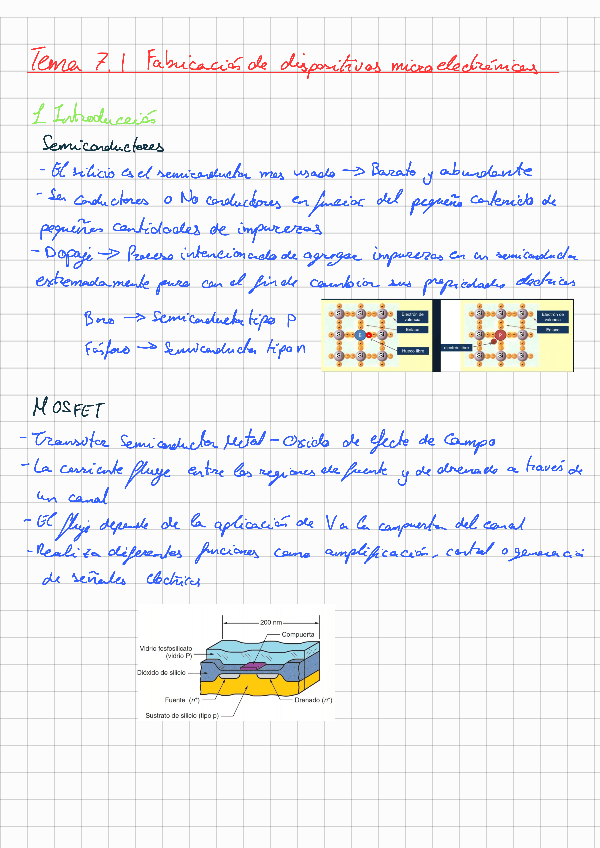 Tema 7.1 Fabricación de dispositivos microelectrónicos
1 Introducción
Semiconductores
- El silicio es el semiconductor mas usado → Barato y abundante
- Ser conductores o No conductores en funcion del pequeño contenido de
pequeñas cantidades de impurezas
- Dopaje → Proceso intencionado de agregar impurezas en un semiconductor
extremadamente puro con el fin de cambiar sus propiedades electricas
Boro → Semiconductor tipo P
Fósforo → Semiconductor tipo n
Electrón de valencia
Enlace
Hueco libre
Electrón de valencia
Enlace
electrón libre
MOSFET
- Transistor Semiconductor Metal - Oxido de efecto de Campo
- La corriente fluye entre las regiones de fuente y de drenado a través de
un canal
- El flujo depende de la aplicación de V a la compuerta del canal
- Realiza diferentes funciones como amplificación, control o generación
de señales electricas
200 nm
Compuerta
Vidrio fosfosilicato
(vidrio P)
Dióxido de silicio
Fuente (n⁺)
Drenado (n⁺)
Sustrato de silicio (tipo p)